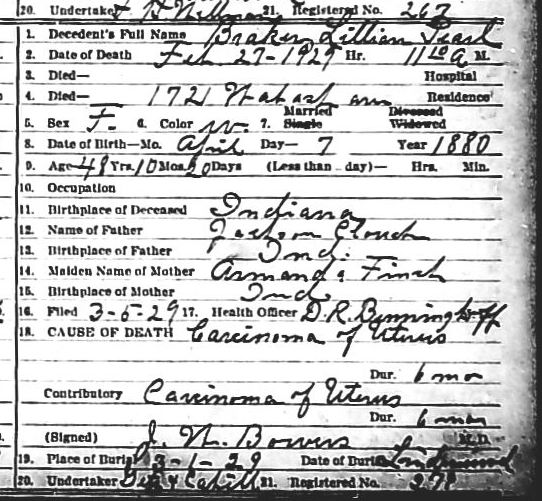 20. Undertaker 21. Registered No. 267
1. Decedent's Full Name Braken Lillian Pearl
2. Date of Death Feb 27-1929 Hr. 11 10 A M.
3. Died— Hospital
4. Died— 1721 Wabash Residence
5. Sex F. 6. Color W. 7. Married Single Divorced Widowed
8. Date of Birth—Mo. April Day— 7 Year 1880
9. Age 48 Yrs. 10 Mos. 20 Days (Less than day)— Hrs. Min.
10. Occupation
11. Birthplace of Deceased Indiana
12. Name of Father Jackson Clouch
13. Birthplace of Father Ind.
14. Maiden Name of Mother Armanda Finch
15. Birthplace of Mother Ind
16. Filed 3-5-29 17. Health Officer D. R. Benninghoff
18. CAUSE OF DEATH Carcinoma of Uterus
Dur. 6 mo
Contributory Carcinoma of Uterus
Dur. 6 mo
(Signed) J. N. Bowers M.D.
19. Place of Burial 3-1-29 Date of Burial Lindenwood
20. Undertaker Getz & Cahill 21. Registered No.